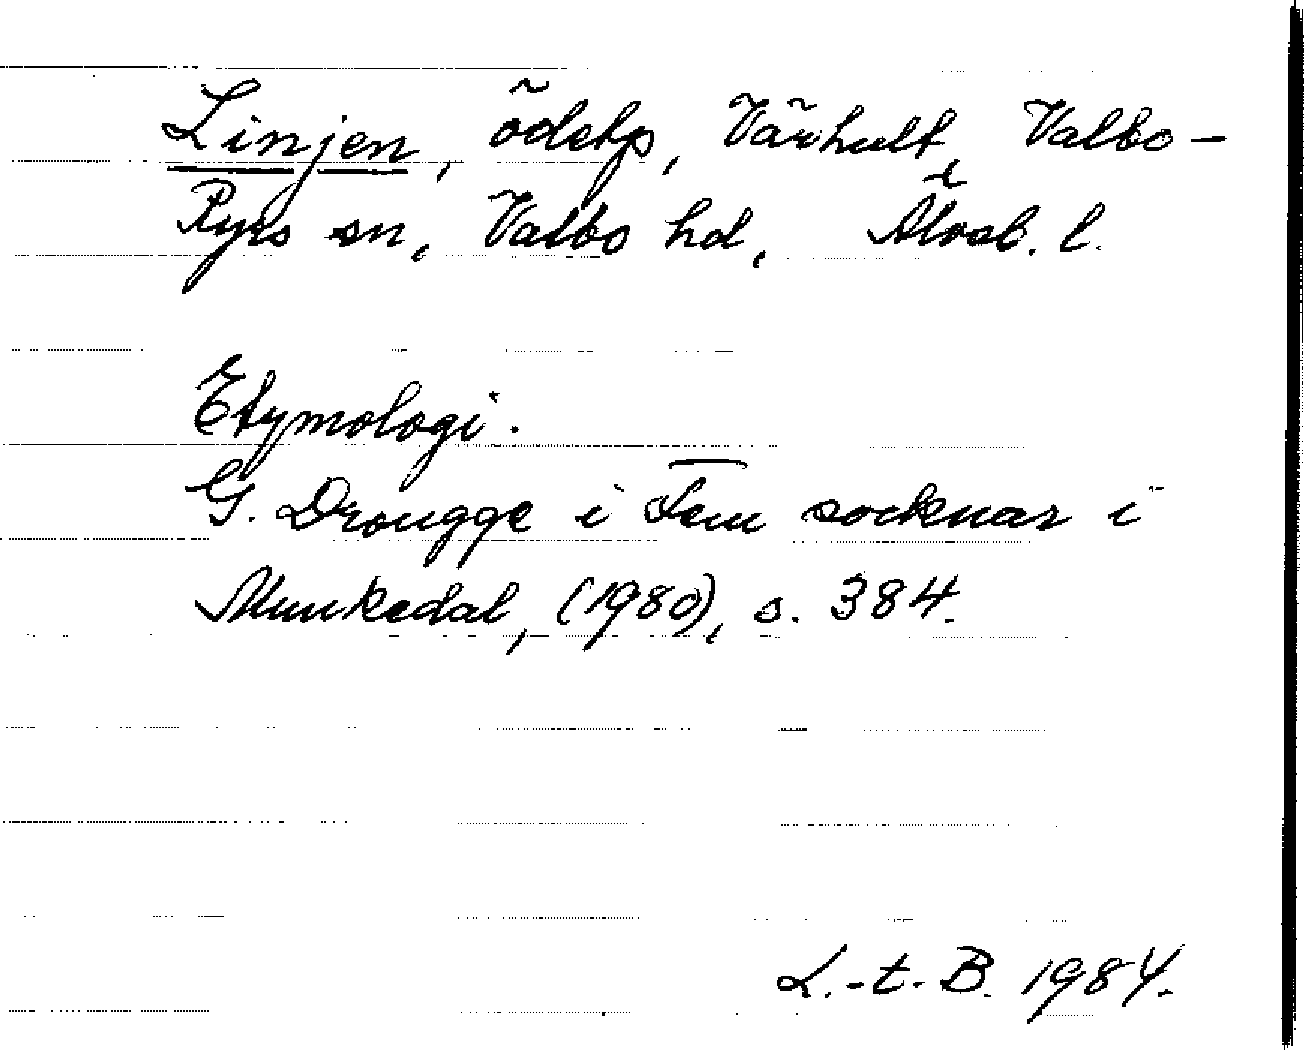 Linjen, ödetp, Värhult, Valbo-
Ryrs sn, Valbo hd, Älvsb. l.
Etymologi.
G. Drougge i Fem socknar i
Munkedal, (1980), s. 384.
L.-t. B. 1984.